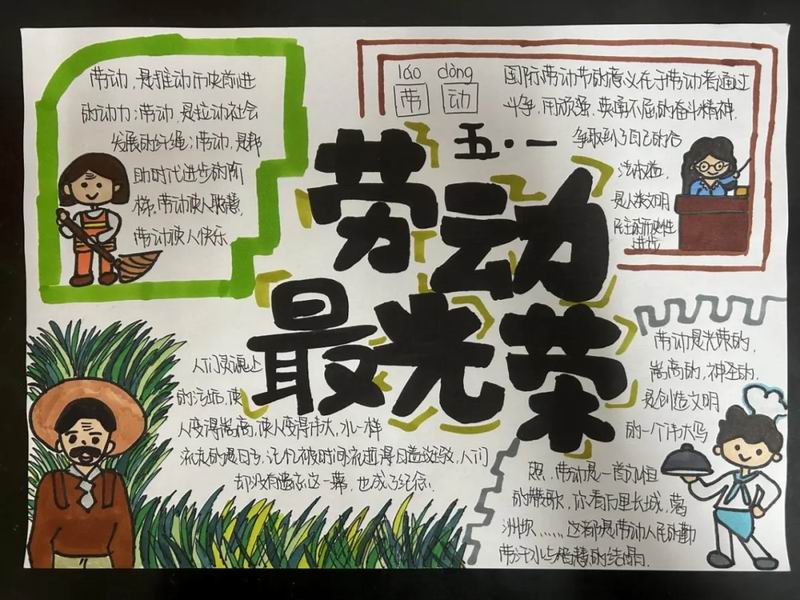 劳动,是推动历史前进
的动力;劳动,是拉动社会
发展的纤绳;劳动,是帮
助时代进步的阶
梯,劳动使人聪慧,
劳动使人快乐
láo dòng
劳 动
国际劳动节的意义在于劳动者通过
斗争,用顽强、英勇不屈的奋斗精神,
争取到了自己的合
法权益,
是人类文明
民主的历史性
进步
五·一
劳动
最光荣
人们
上
的 使
人变得崇高,使人变得伟大,水一样
流走的是日子,记忆被时间流逝得日益斑驳,人们
却没有遗忘这一幕,也成了纪念.
劳动是光荣的,
崇高的,神圣的,
是创造文明
的一个伟大
照,劳动是一首
的赞歌,你看万里长城,葛
洲坝......,这都是劳动人民的勤
劳汗水与智慧的结晶.